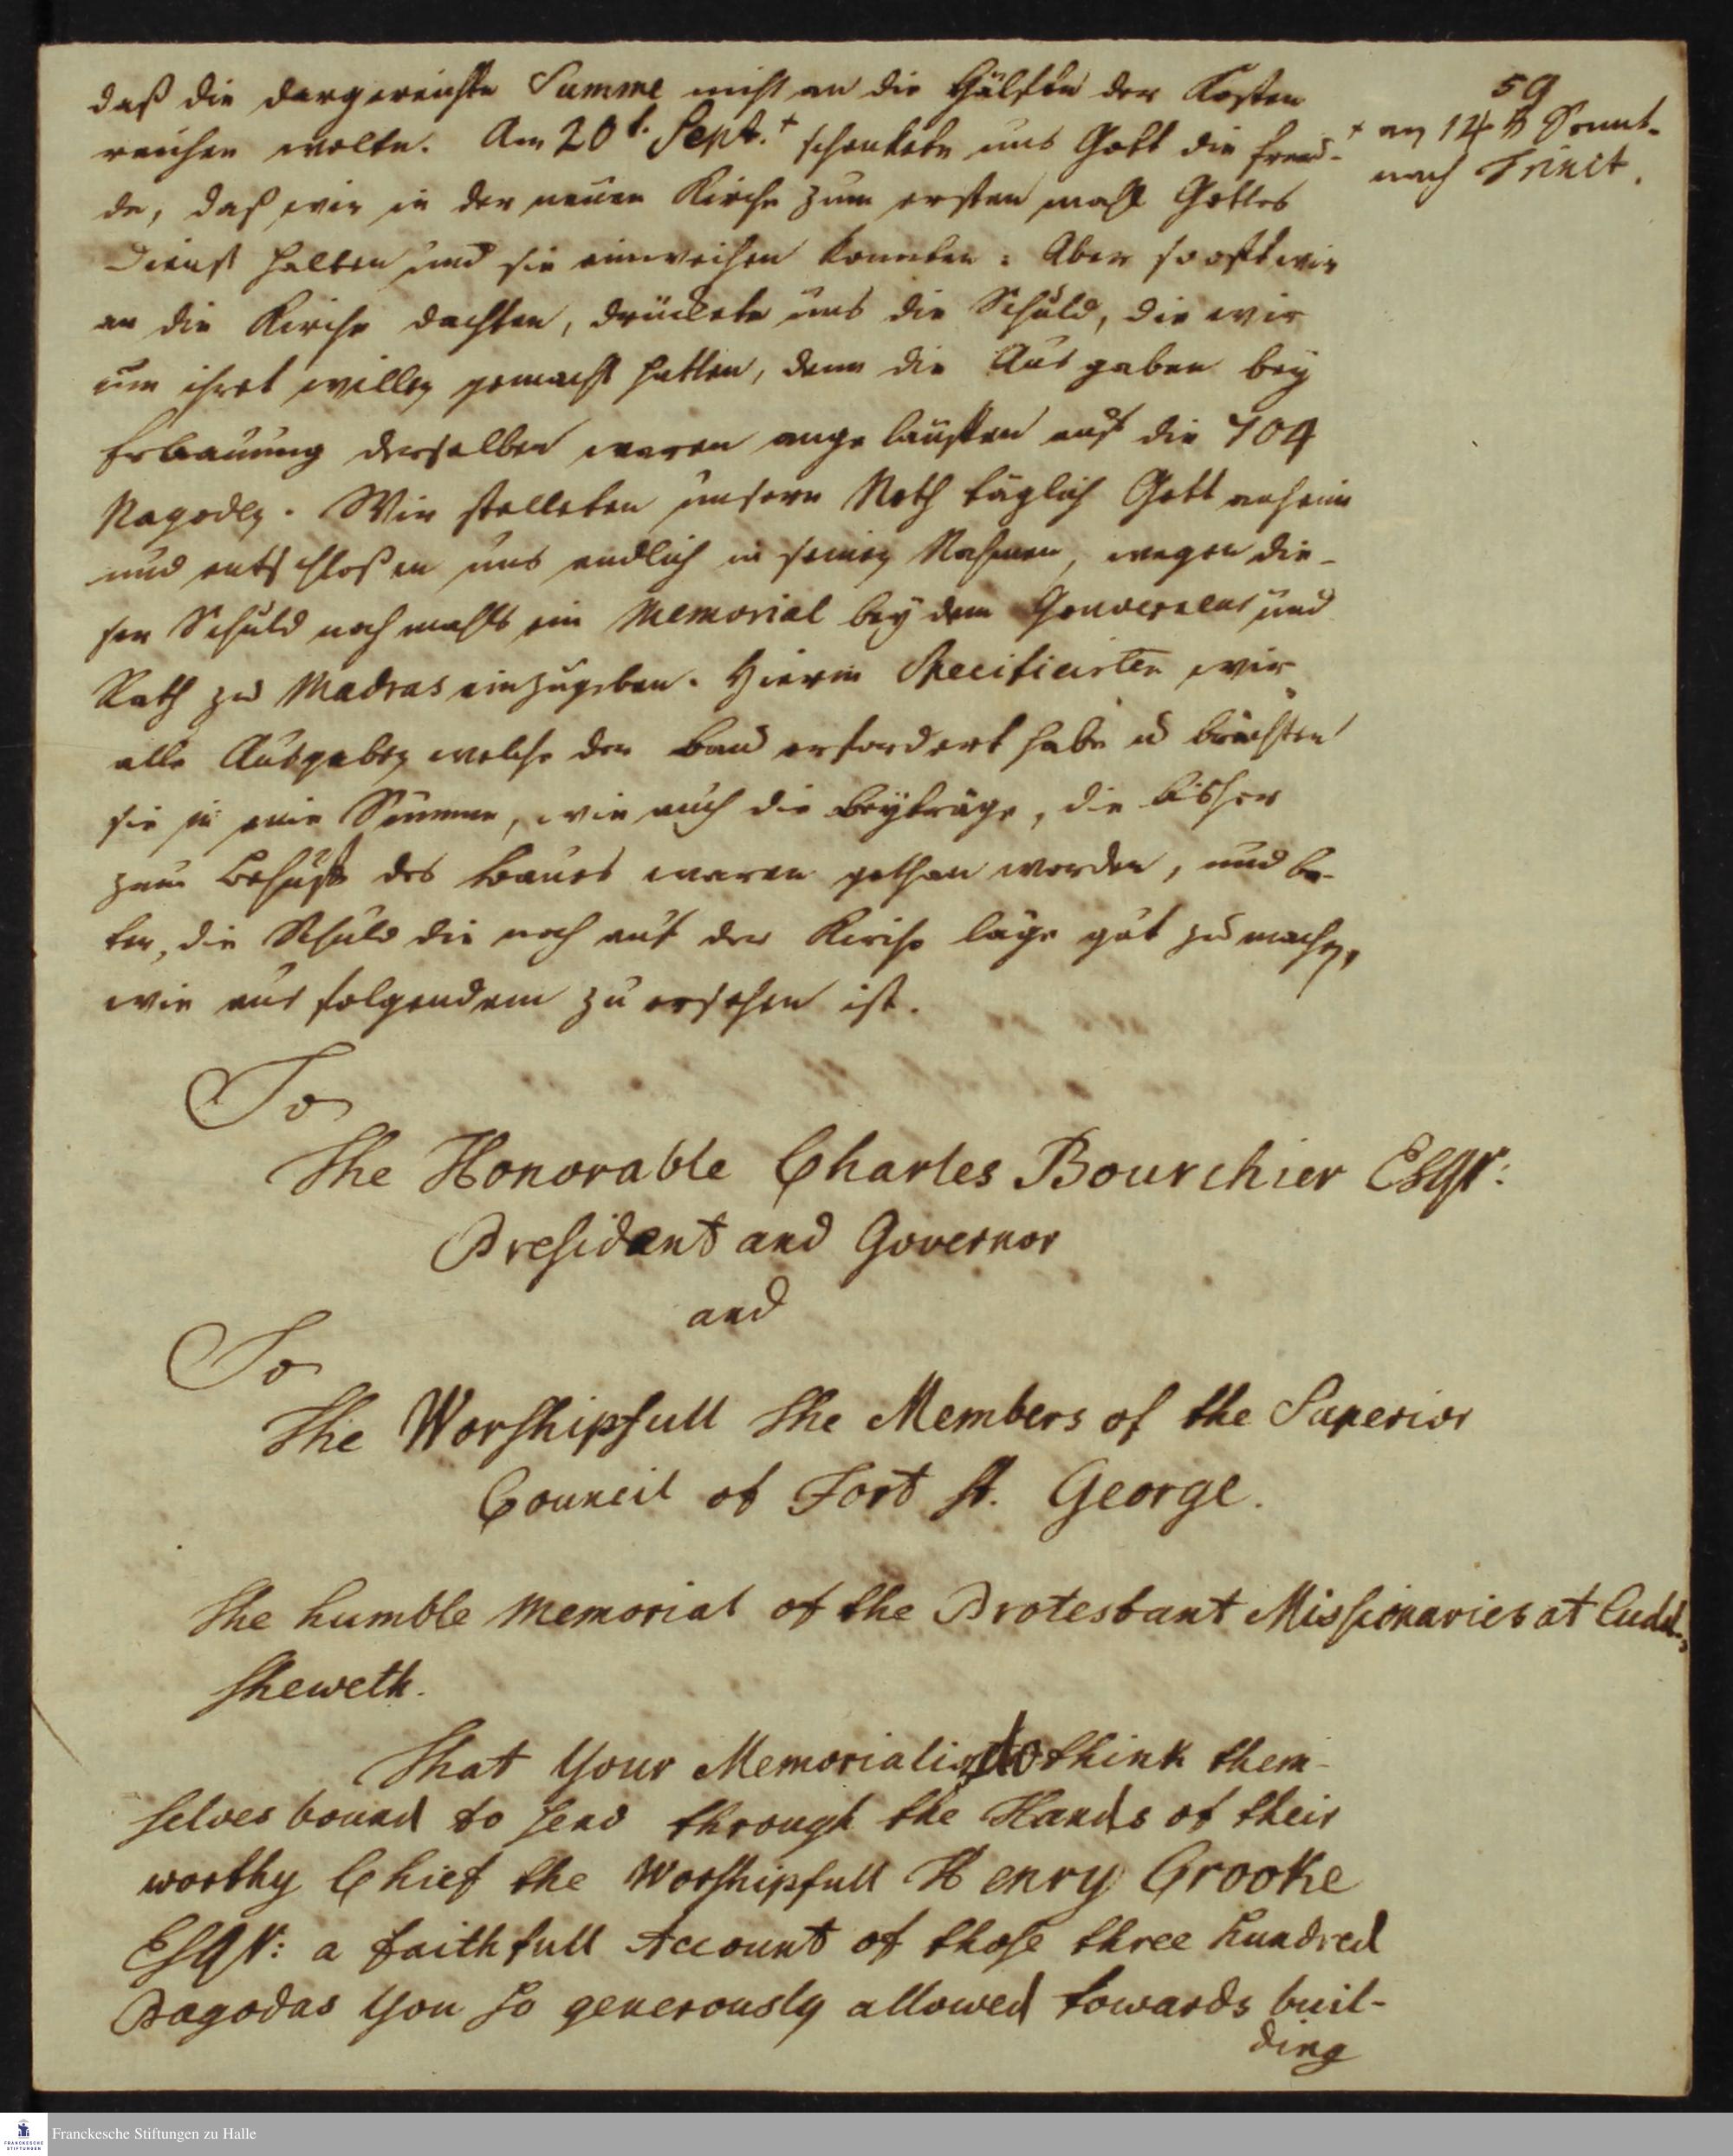 59
daß die dargereichte Summe nicht an die Hälfte der Kosten
reichen wolte. Am 20t. Sept.+ schenkete uns Gott die Freu-
+ am 14 Sonnt.
nach Trinit.
de, daß wir in der neuen Kirche zum ersten mahl Gottes
Dienst halten und sie einweihen konnten: Aber so oft wir
an die Kirche dachten, drückete uns die Schuld, die wir
um ihret willen gemacht hatten, denn die Ausgaben bey
Erbauung derselben waren angelauffen auf die 704
Pagoden. Wir stelleten unsere Noth täglich Gott anheim
und entschloßen uns endlich in seinem Nahmen, wegen die-
ser Schuld nochmahls ein Memorial bey dem Gouverneur und
Rath zu Madras einzugeben. Hierin Specificirten wir
alle Ausgaben welche der Bau erfordert habe u brachten
sie in eine Summe, wie auch die Beyträge, die bisher
zum Behuff des Baues waren gethan worden, und ba-
ten, die Schuld die noch auf der Kirche läge gut zu machen,
wie aus folgendem zu ersehen ist.
To
The Honorable Charles Bourchier Esqr:
President and Governor
and
To
The Worshipfull The Members of the Superior
Council of Fort St. George.
The humble Memorial of the Protestant Missionaries at Cudd.,
Sheweth.
That Your Memorialists do think them-
selves bound to send through the Hands of their
worthy Chief the Worshipfull Henry Brooke
Esqr: a faithfull Account of those three hundred
Pagodas You so generously allowed towards buil-
ding
Franckesche Stiftungen zu Halle
FRANCKESCHE
STIFTUNGEN